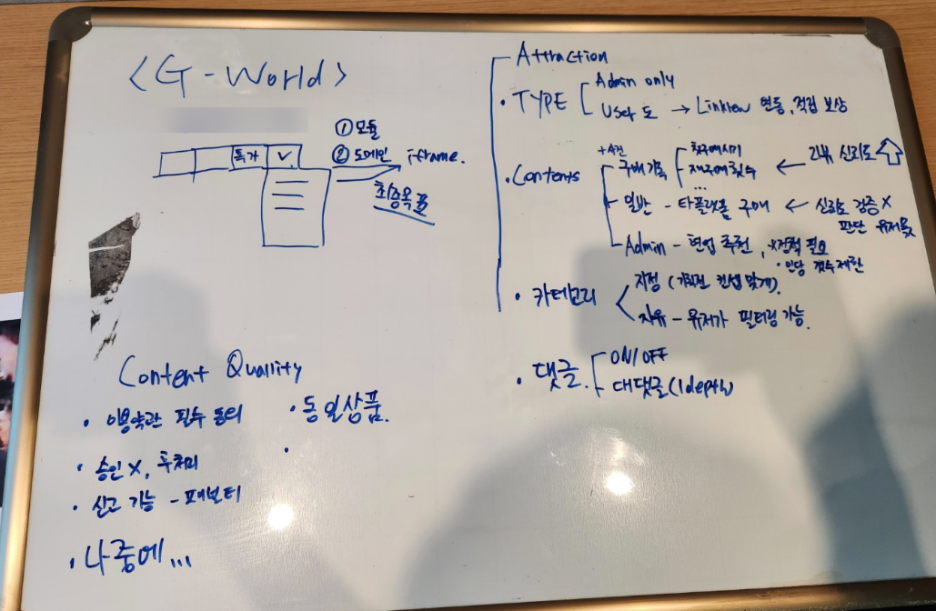 <G-World>
① 모듈
② 도메인
특가
i-frame.
최종목표
Attraction
· TYPE
Admin only
User도 → Linkrew 연동, 적립 보상
· Contents
구매기록
첫구매시기
재구매횟수
...
← 리뷰 신뢰도
일반 - 타플랫폼 구매 ← 신뢰도 검증 X
판단 유저몫
Admin - 현업 추천, 정책 필요
· 인당 갯수제한
· 카테고리
지정 (기획전 컨셉 맞게).
자유 - 유저가 필터링 가능.
· 댓글.
ON/OFF
대댓글(1depth)
Content Quality
· 이용약관 필수 동의
· 승인 X, 후처리
· 신고 기능 - 패널티
· 나중에...
· 동일상품.